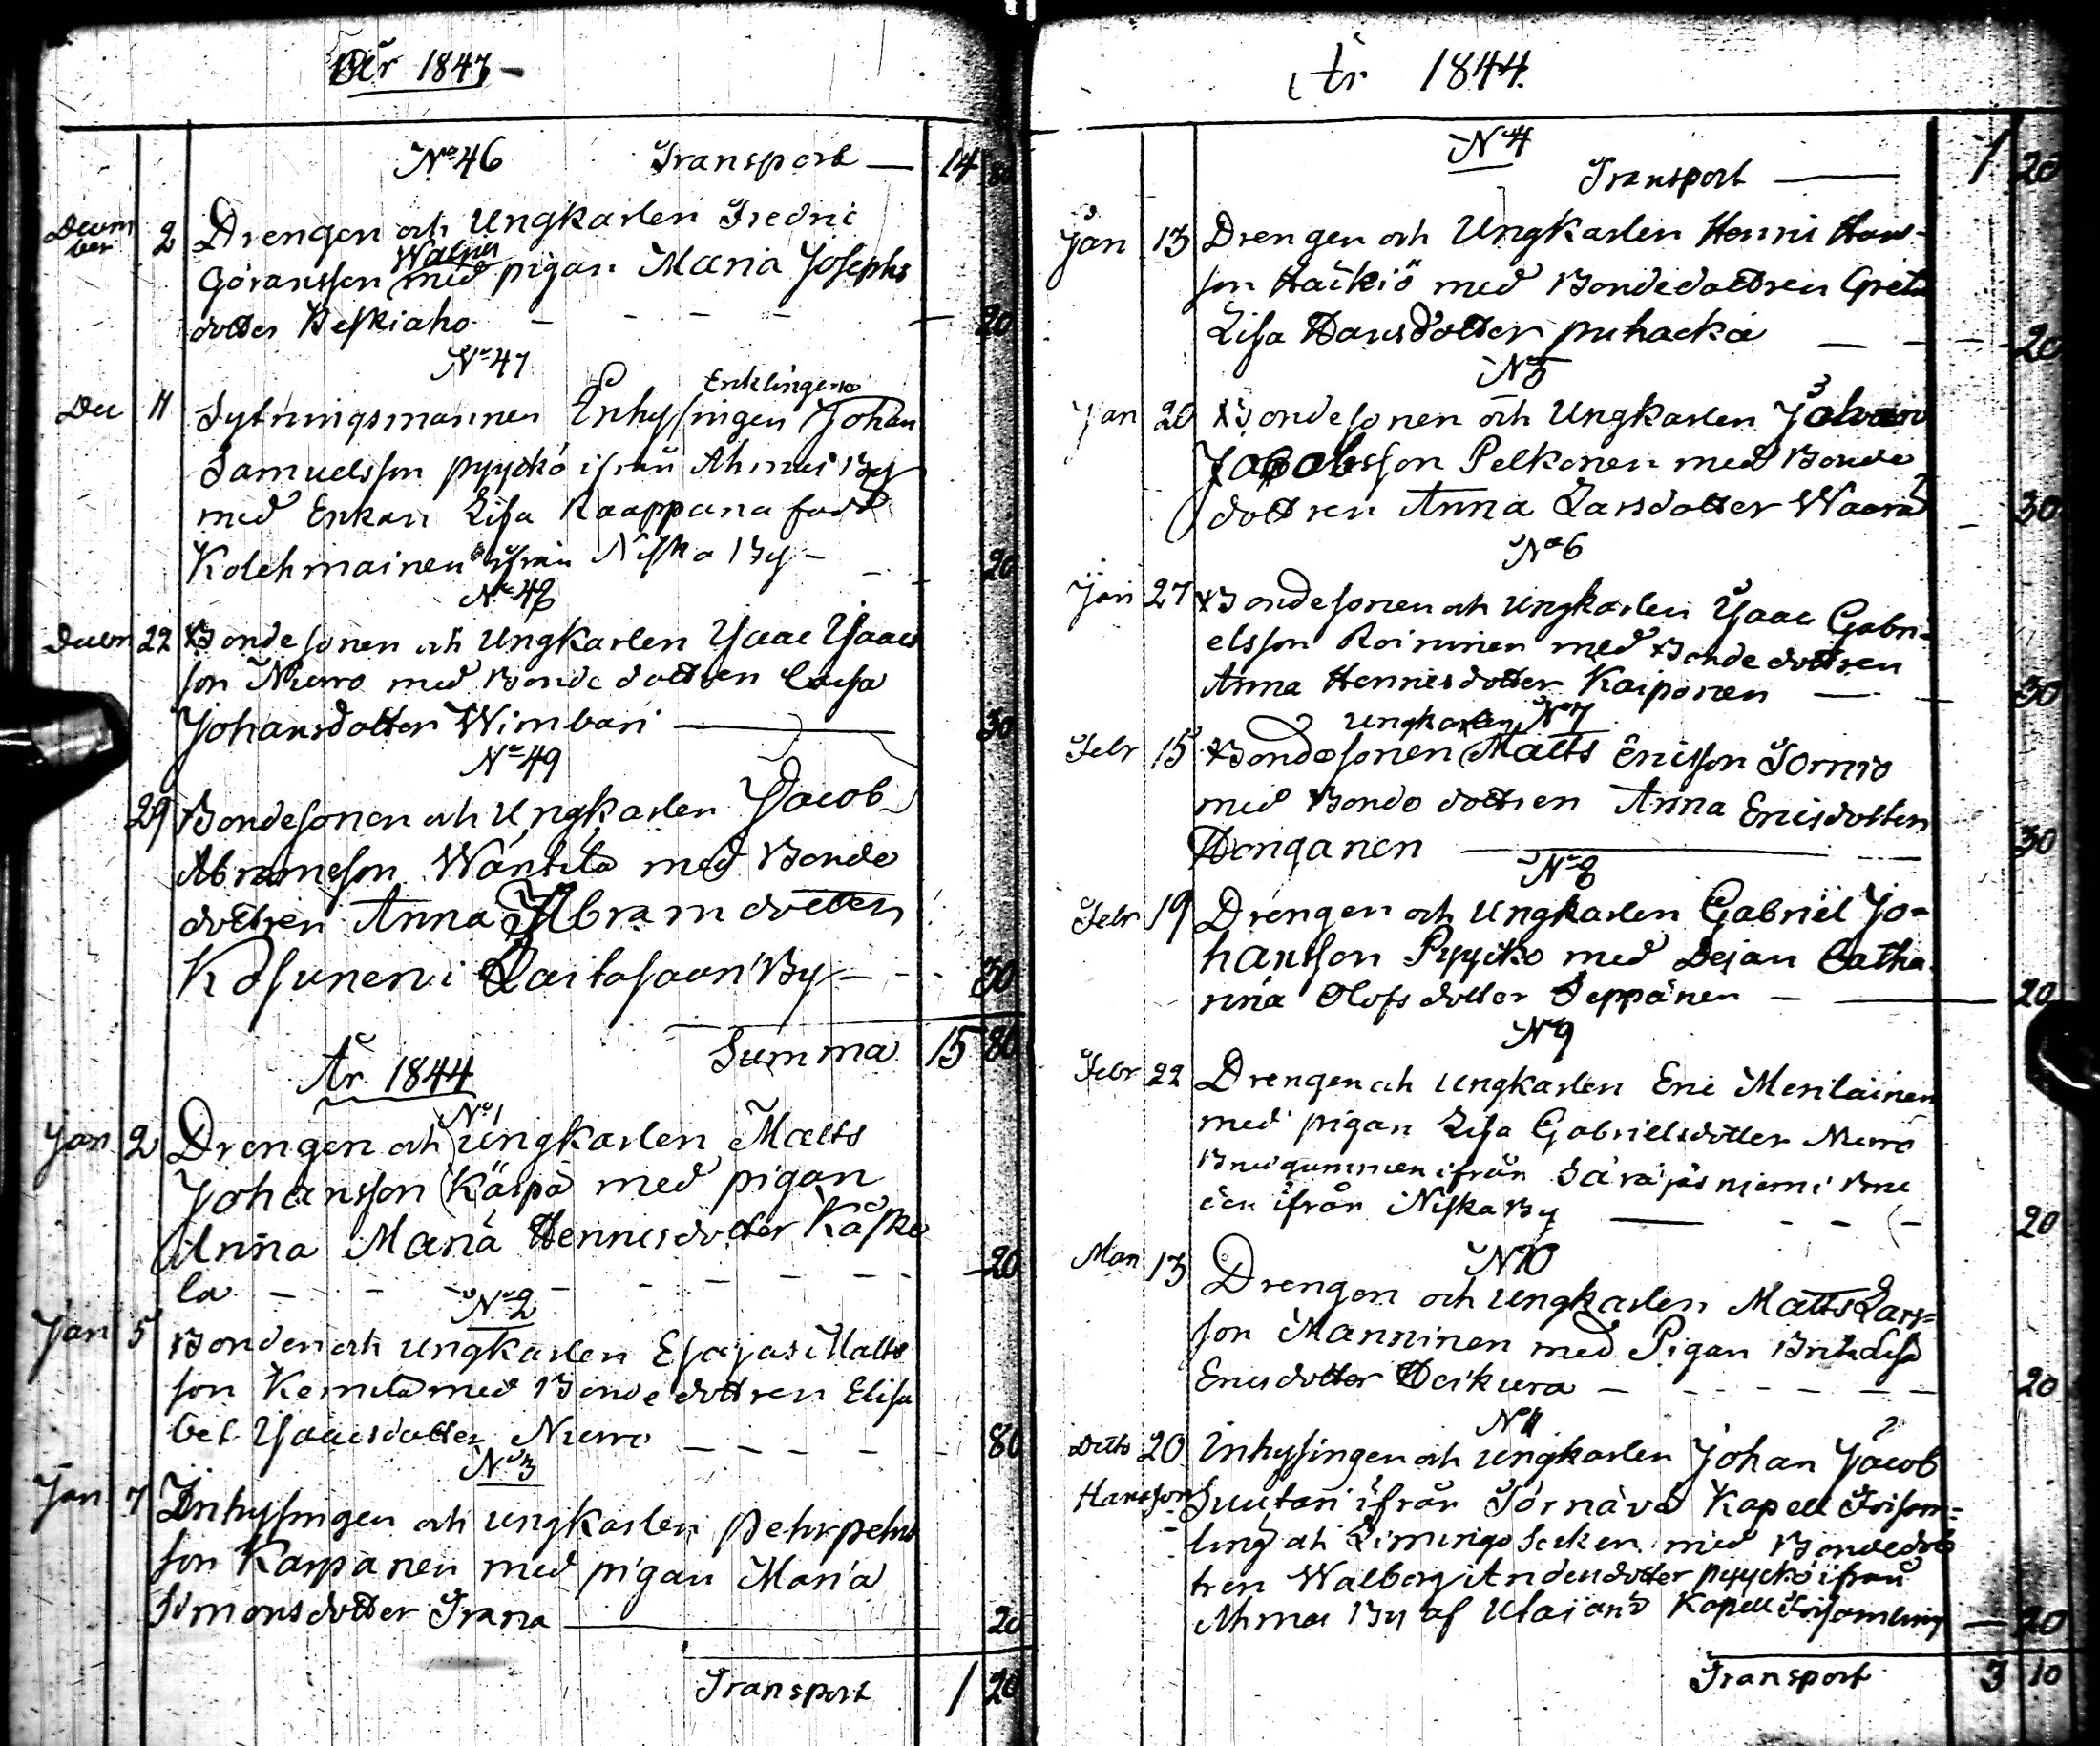 År 1843
No 46 Transport — 14 80
Decem ber 2 Drengen och Ungkarlen Fredric
Walna
Göransson med pigan Maria Josephs
dotter Keskiaho — 20
No 47
Dec 11 Sytningsmannen Inhysingen Enklingen Johan
Samuelsson Pyyckö ifrån Ahmas By
med Enkan Lisa Kaappana född
Kolehmainen ifrån Niska By — 20
No 48
Decbr 22 Bondesonen och Ungkarlen Isaac Isaacs
son Niuro med Bonde dottren Caisa
Johansdotter Wimbari — 30
No 49
29 Bondesonen och Ungkarlen Jacob
Abramsson Wänttila med Bonde
dottren Anna Abramdotter
Kosunen i Laitasaari By — 30
Summa 15 80
År 1844
No 1
Jan 2 Drengen och Ungkarlen Matts
Johansson Käspä med pigan
Anna Maria Hennisdotter Käske
la — 20
No 2
Jan 5 Bonden och Ungkarlen Esajas Matts
son Kemila med Bonde dottren Elisa
bet Isaacsdotter Niuro — 80
No 3
Jan 7 Inhysingen och Ungkarlen Pehr Pehrs
son Karpanen med pigan Maria
Simonsdotter Trana — 20
Transport 1 20
År 1844.
No 4
Transport — 1 20
Jan 13 Drengen och Ungkarlen Henric Hans-
son Häikiö med Bondedottren Greta
Lisa Hansdotter Puhacka — 20
No 5
Jan 20 Bondesonen och Ungkarlen Johan
Jacobsson Pelkonen med Bonde
dottren Anna Larsdotter Waara — 30
No 6
Jan 27 Bondesonen och Ungkarlen Isaac Gabri-
elsson Roininen med Bonde dottren
Anna Hennisdotter Kaiponen — 30
No 7
Ungkarlen
Febr 15 Bondesonen Matts Ericsson Tornio
med Bonde dottren Anna Ericsdotter
Honganen — 30
No 8
Febr 19 Drengen och Ungkarlen Gabriel Jo-
hansson Pyyckö med Dejan Catha-
rina Olofsdotter Seppänen — 20
No 9
Febr 22 Drengen och Ungkarlen Eric Meriläinen
med pigan Lisa Gabrielsdotter Niuro
Brudgummen ifrån Säräjäsniemi Bru
den ifrån Niska By — 20
No 10
Mar 13 Drengen och Ungkarlen Matts Lars-
son Manninen med Pigan Brita Lisa
Ericsdotter Heikura — 20
No 11
Ditto 20 Inhysingen och Ungkarlen Johan Jacob
Hansson Suutari ifrån Törnävä Kapell Församl=
ling och Limingo Socken med Bondedot
tren Walborg Andersdotter Pyyckö ifrån
Ahmas By af Utajärvi Kapell Församling — 20
Transport 3 10